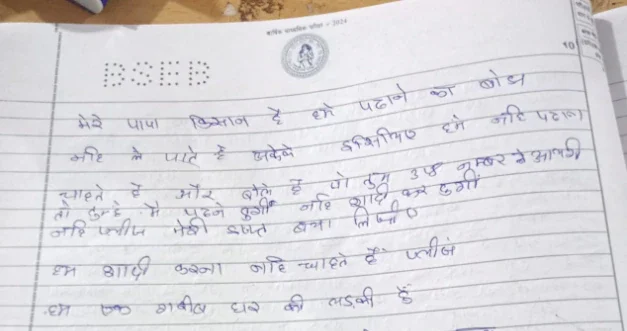 वार्षिक माध्यमिक परीक्षा - 2024
BSEB
10
मेरे पापा किसान है हमे पढाने का बोध
नहि ले पाते है इसिलिए हमे नहि पढाना
चाहते है और बोले है जो तुम उच्छ नम्बर से आएगी
तो तुम्हे मै पढने दुगीं नहि शादी कर दुगीं
नहि प्लीज मेरी इज्जत बचा लिजीए
हम शादी करना नहि चाहते हैं प्लीजं
हम एक गबीब घर की लड़की हैं